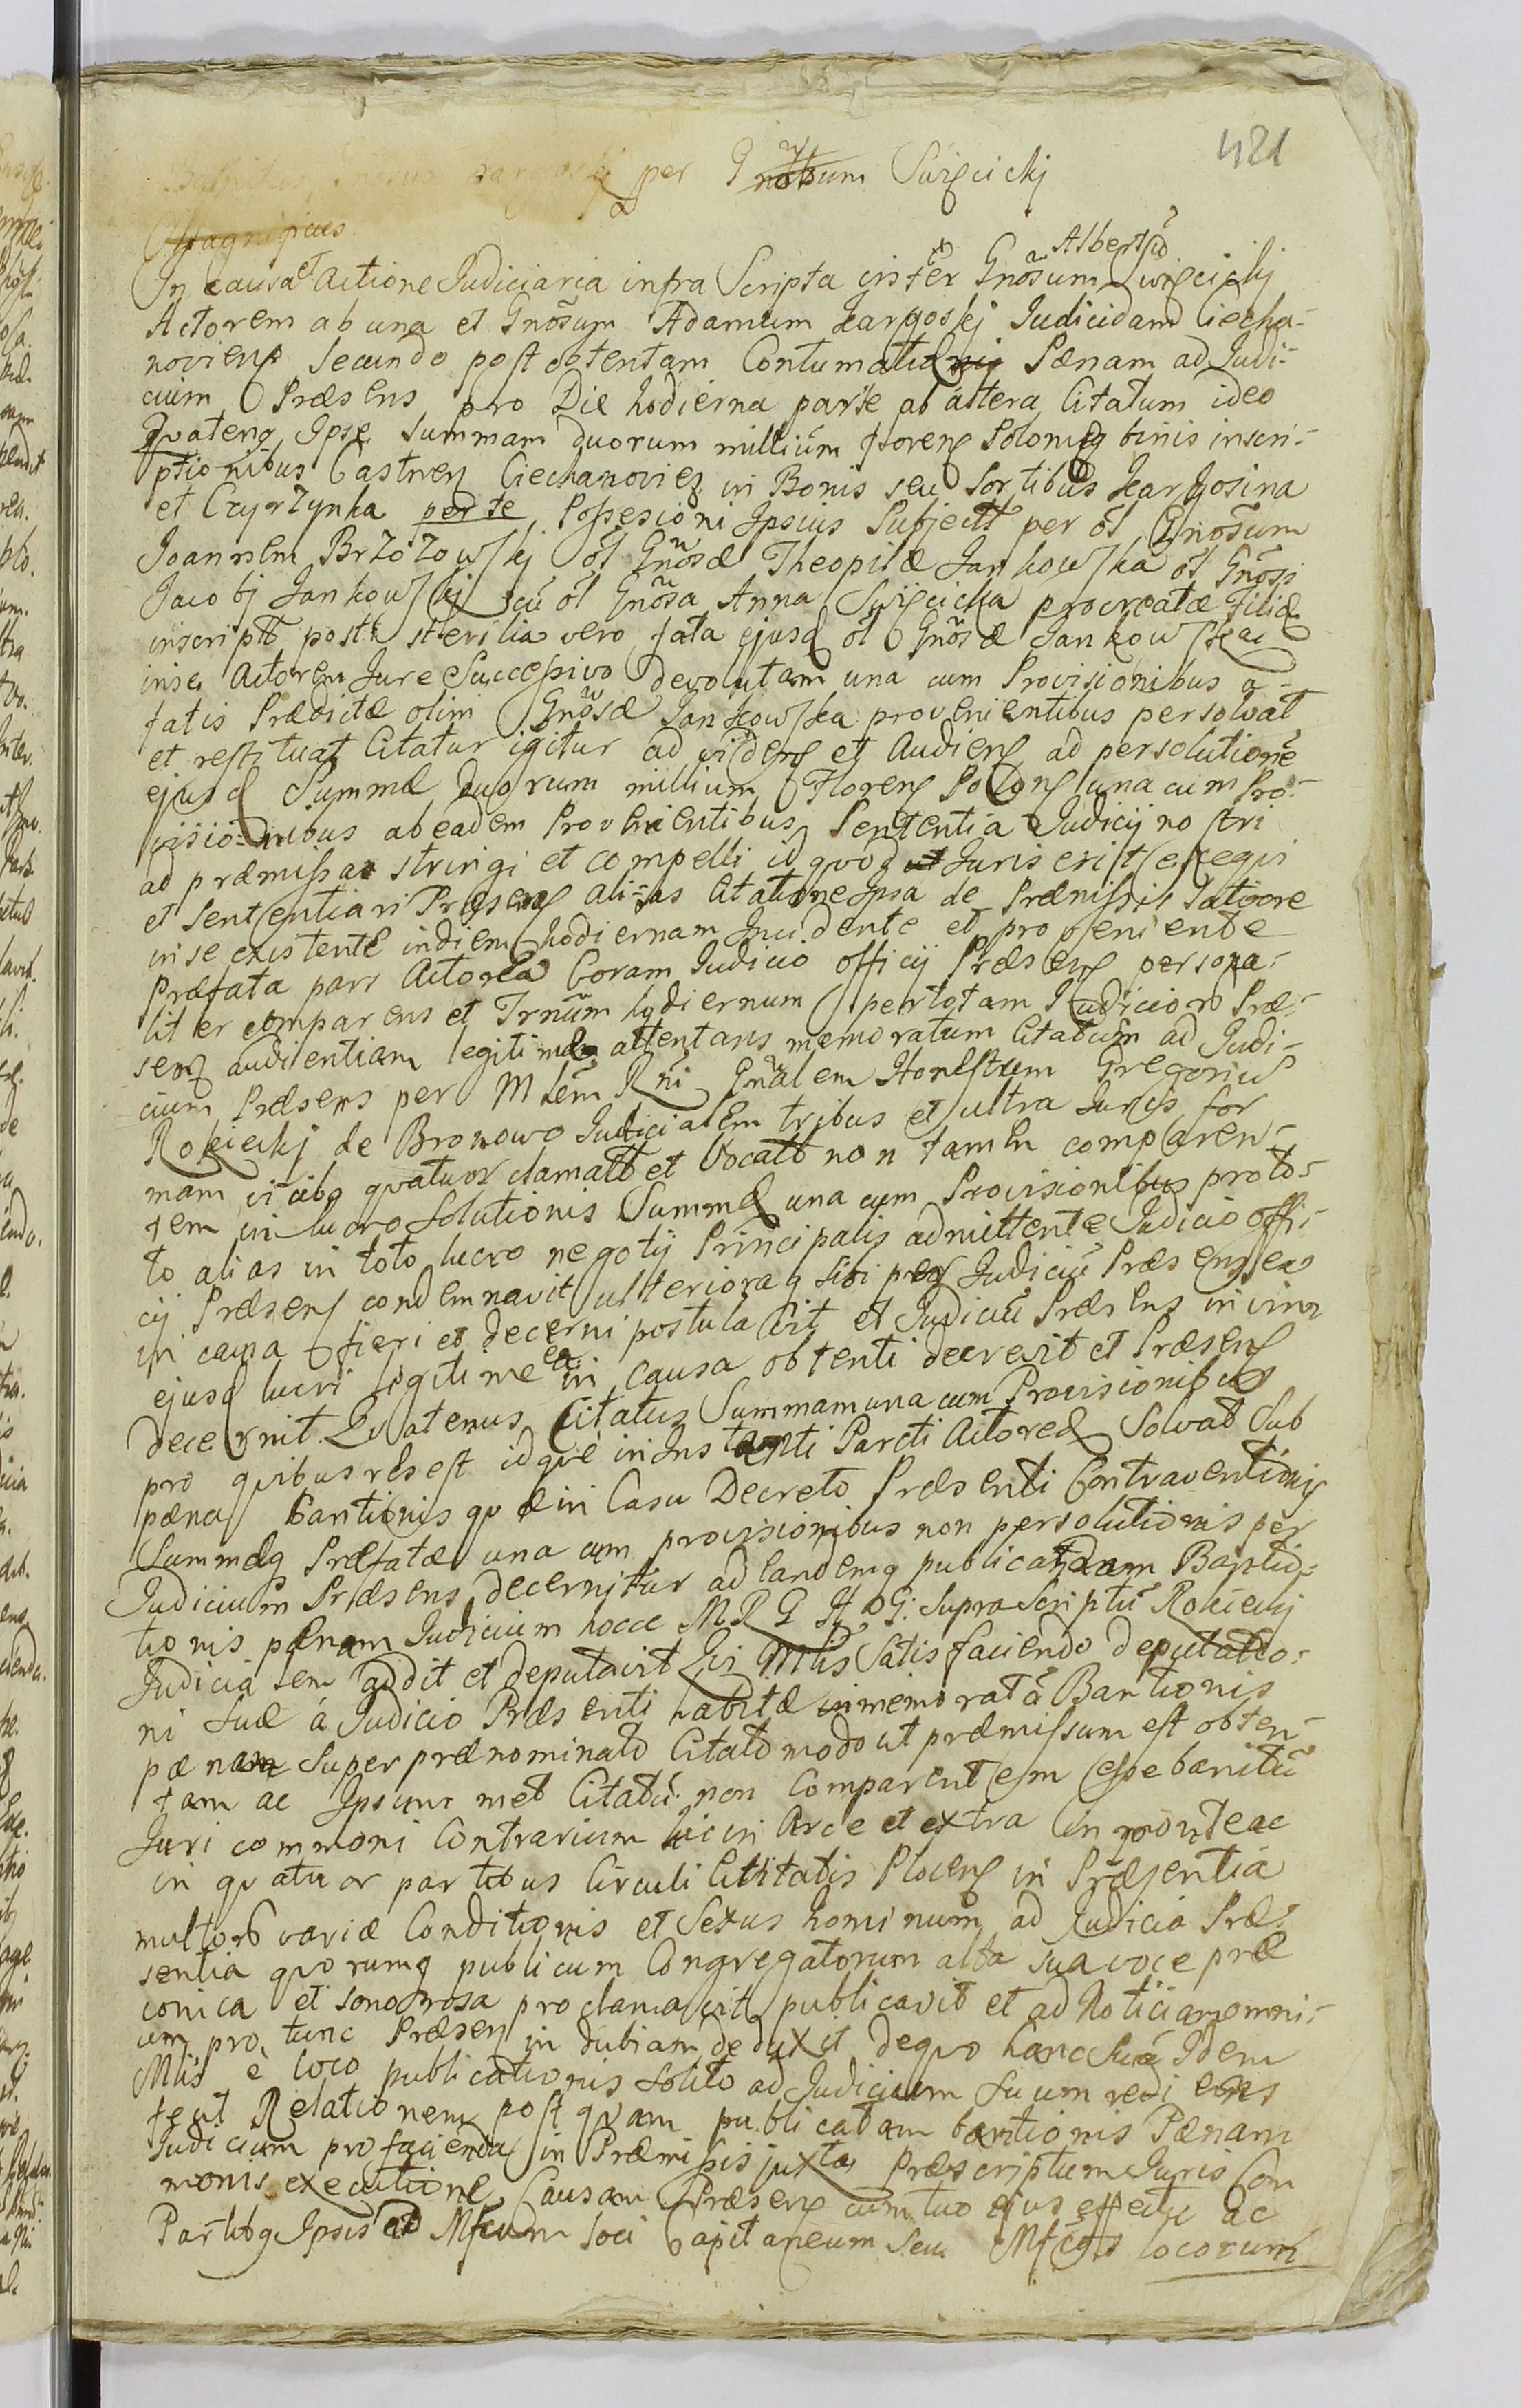 421
per Gnosum Święcickj
Magnificus
In causa et Actione Judiciaria infra Scripta inter Gnõsum Albertũ Swięcickj
Actorem ab una et Gnõsum Adamum Kargoskj Judicidam Ciecha-
noviens secundo post obtentam Contumatiae Pænam ad Judi-
cium Præsens pro Die hodierna parte ab altera Citatum ideo
Quatenq Ipse summam duorum millium florenz Polonicq binis inscri-
ptionibus Castrenz Ciechanoviez in Bonis seu Sortibus Kargosina
et Czyrzynka per te Possesioni Ipsius Subject per ol Gnõsum
Joannem Brzozowskj ol Gnõsæ Theopilæ Jankowska ol Gnõsi
Jacobj Jankowskj cũ ol Gnõsa Anna Swięcicka procreatæ Filiæ
inscript post sterilia vero fata ejusd ol Gnõsæ Jankowskae
in se Actorem Jure Successivo devolutam una cum Provisionibus a
fatis Prædictæ olim Gnõsæ Jankowska provenientibus persolvat
et restituat Citatur igitur ad videnz et Audienz ad persolutionẽ
ejusd Summæ Duorum millium Florenz Polonz una cum Pro-
visionibus ab eadem Provenientibus Sententia Judicij nostri
ad præmissa stringi et compelli id quod Juris erit exequi
et Sententiari Præsenz alias Citatione Ipsa de Præmissis latiore
in se existente in diem hodiernam Incidente et proveniente
Præfata pars Actorea Coram Judicio officij Præsenz persona-
liter comparens et Trnũm hodiernum per totam Judicior Præ-
senz audientiam legitime attentans memoratum Citatum ad Judi-
cium Præsens per Mlem Rni Gnãlem Honestum Gregoriũ
Rokickj de Bronowo Judicialem tribus et ultra Juris for
mam vicibq quatuor clamat et Vocat non tamen comparen-
tem in lucro Solutionis Summæ una cum Provisionibus proto-
to alias in toto lucro negotij Principalis admittente Judicio offi-
cij Præsenz condemnavit ulterioraq sibi per Judiciũ Præsens ea
in causa fieri et decerni postulavit et Judiciũ Præsens in vim
ejusd lucri legitime ea in causa obtenti decrevit et Præsenz
decernit. Quatenus Citatus Summam una cum Provisionibus
pro quibus res est idque in Instanti Parti Actoreæ Solvat Sub
pæna Banitionis quæ in Casu Decreto Præsenti Contraventionis
Summæq Præfatæ una cum provisionibus non persolutionis per
Judicium Præsens decernitur ad eandemq publicandam Banitio-
tionis pænam Judicium hocce M R G H G: supra Scriptũ Rokickj
Judicialem addit et deputavit Qui Mlis Satisfaciendo deputatio-
ni suæ á Judicio Præsenti habitæ memoratã Banitionis
pænam super prænominato Citato modo ut præmissum est obten-
tam ac Ipsum met Citatũ non Comparentem esse banitũ
Juri commoni Contrarium hic in Arce et extra in ponte ac
in quatuor partibus Circuli Civitatis Plocenz in Præsentia
multor variæ Conditionis et Sexus hominum ad Judicia Præ-
sentia quorumq publicum Congregatorum alta sua voce præ
conica et sonorosa proclamavit publicavit et ad Noticiam omni-
um pro tunc Præsenz in dubiam deduxit de quo hanc suã Idem
Mlis è loco publicationis solito ad Judicium suum rediens
fecit Relationem post quam publicatam banitionis Pænam
Judicium pro facienda in Præmissis juxta Præscriptum Juris Com
monis executione Causam Præsenz cum tuo ejus effectu ac
Partibq Ipsis ad Mfcum loci Capitaneum Seu Mfcos locorum